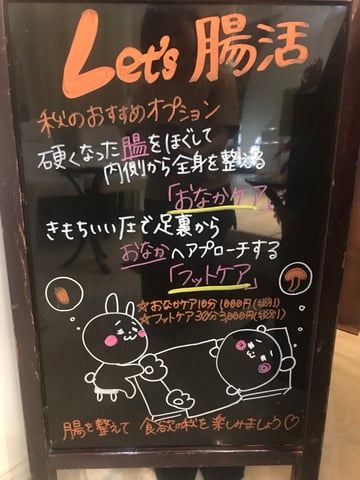 Let's 腸活
秋のおすすめオプション
硬くなった腸をほぐして
内側から全身を整える
「おなかケア」
きもちいい圧で足裏から
おなかへアプローチする
「フットケア」
☆おなかケア10分1,000円(税別)
☆フットケア30分3,000円(税別)
腸を整えて 食欲の秋を楽しみましょう♡